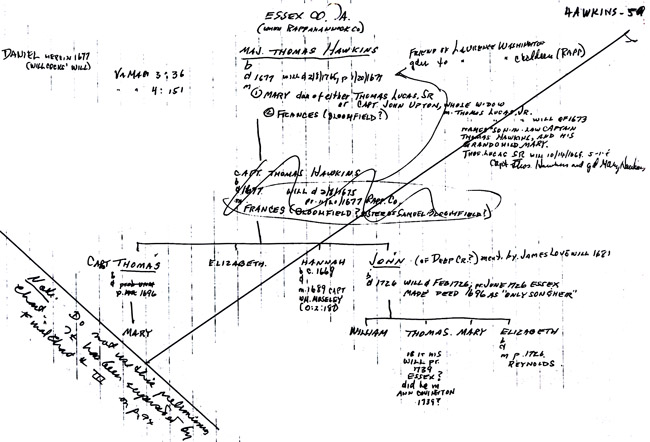 ESSEX CO, VA.
(WHEN RAPPAHANNOCK CO)
HAWKINS-
DANIEL 1677
(WILLCOCKS' WILL)
VaMAG 3:36
" " 4:151
MAJ. THOMAS HAWKINS
b
d 1677 will d 2/8/1675, p
m
① MARY dau of either THOMAS LUCAS, SR
or CAPT JOHN UPTON, WHOSE WIDOW
m. THOMAS LUCAS, JR.
② FRANCES (BLOOMFIELD?)
FRIEND OF LAWRENCE WASHINGTON
to " " children (RAPP)
" " WILL OF 1673
NAMES SON-IN-LAW CAPTAIN
THOMAS HAWKINS, AND HIS
GRANDCHILD MARY.
THOS. LUCAS SR WILL
Capt. Thos. Hawkins and gd Mary Hawkins
CAPT. THOMAS HAWKINS
b
d 1677 WILL d 2/8/1675
m pr. 1677 RAPP. CO.
FRANCES (BLOOMFIELD? SISTER OF SAMUEL BLOOMFIELD?)
CAPT THOMAS
b
d
p. 1696
MARY
ELIZABETH
HANNAH
b c. 1669
d
m. 1689 CAPT
WM. MOSELEY
(O:2:180)
JOHN (OF DEEP CR.?) ment. by JAMES LOVE WILL 1681
b
d 1726 WILL d FEB 1726, pr. JUNE 1726 ESSEX
MADE DEED 1696 AS "ONLY SON & HEIR"
WILLIAM
THOMAS.
IS IT HIS
WILL pr.
1739
ESSEX?
did he m
ANN COVINGTON
1738?
MARY
ELIZABETH
b
d
m p. 1726
REYNOLDS
Note: Do not use this preliminary
chart. It has been superseded by
final on p.